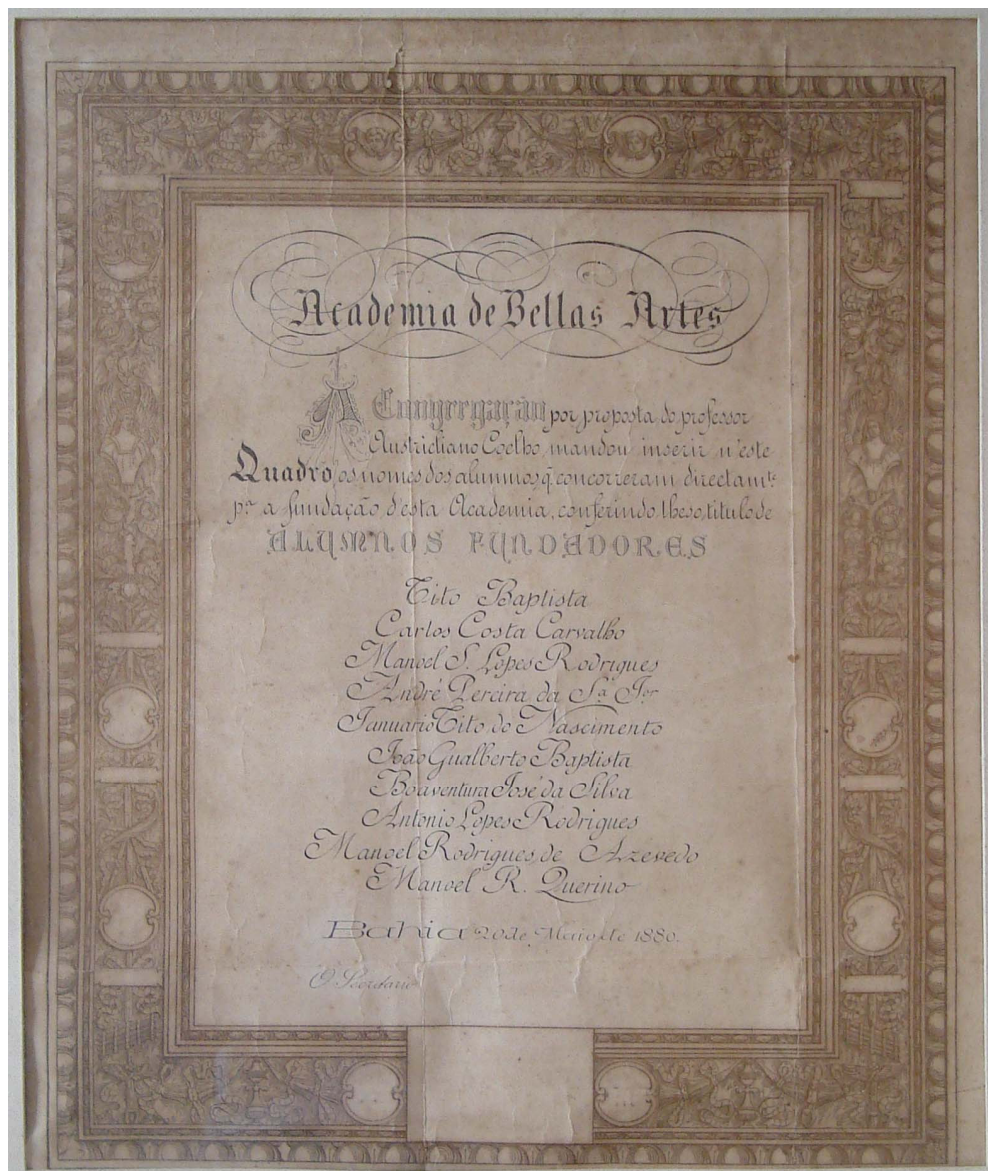 Academia de Bellas Artes
A Congregação por proposta do professor
Austricliano Coelho, mandou inserir n'este
Quadro, os nomes dos alumnos q. concorreram directamte
pa a fundação d'esta Academia, conferindo lheso, titulo de
ALUMNOS FUNDADORES
Tito Baptista
Carlos Costa Carvalho
Manoel S. Lopes Rodrigues
André Pereira da Sa Jor
Januario Tito do Nascimento
João Gualberto Baptista
Boaventura José da Silva
Antonio Lopes Rodrigues
Manoel Rodrigues de Azevedo
Manoel R. Querino
Bahia 20 de Maio de 1880.
O Secretario